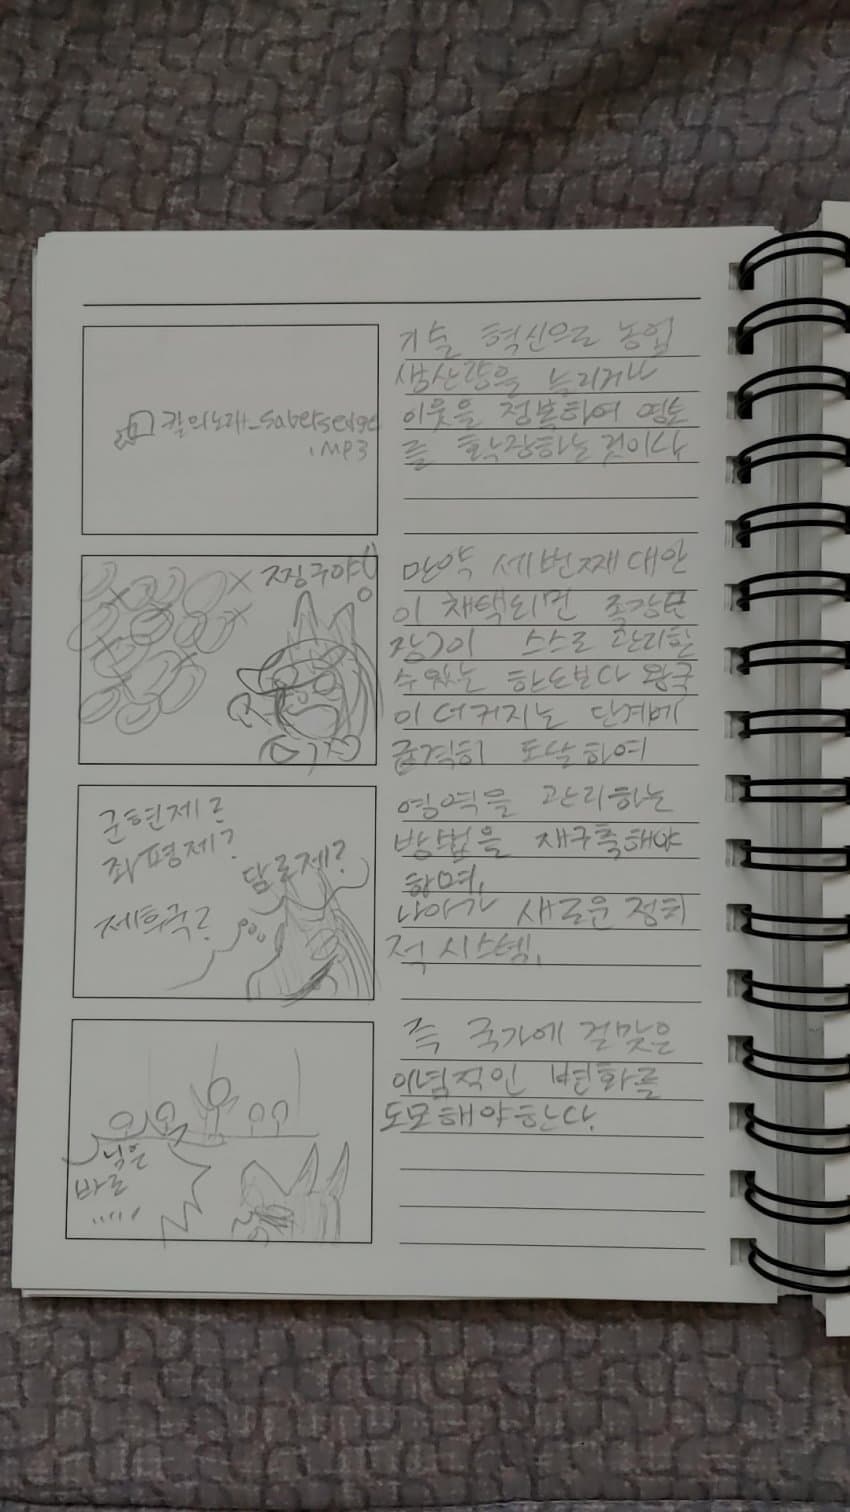 칼의노래_Sabersedge
.MP3
기술 혁신으로 농업
생산량을 늘리거나
이웃을 정복하여 영토
를 확장하는것이다
짱구야!
만약 세번째 대안
이 채택되면 족장(문
장)이 스스로 관리할
수있는 한도보다 왕국
이 더커지는 단계에
급격히 도달하여
군현제?
좌평제?
담로제?
제후국?
영역을 관리하는
방법을 재구축해야
하며,
나아가 새로운 정치
적 시스템,
님은
바로
.....
즉 국가에 걸맞은
이념적인 변화를
도모해야한다.